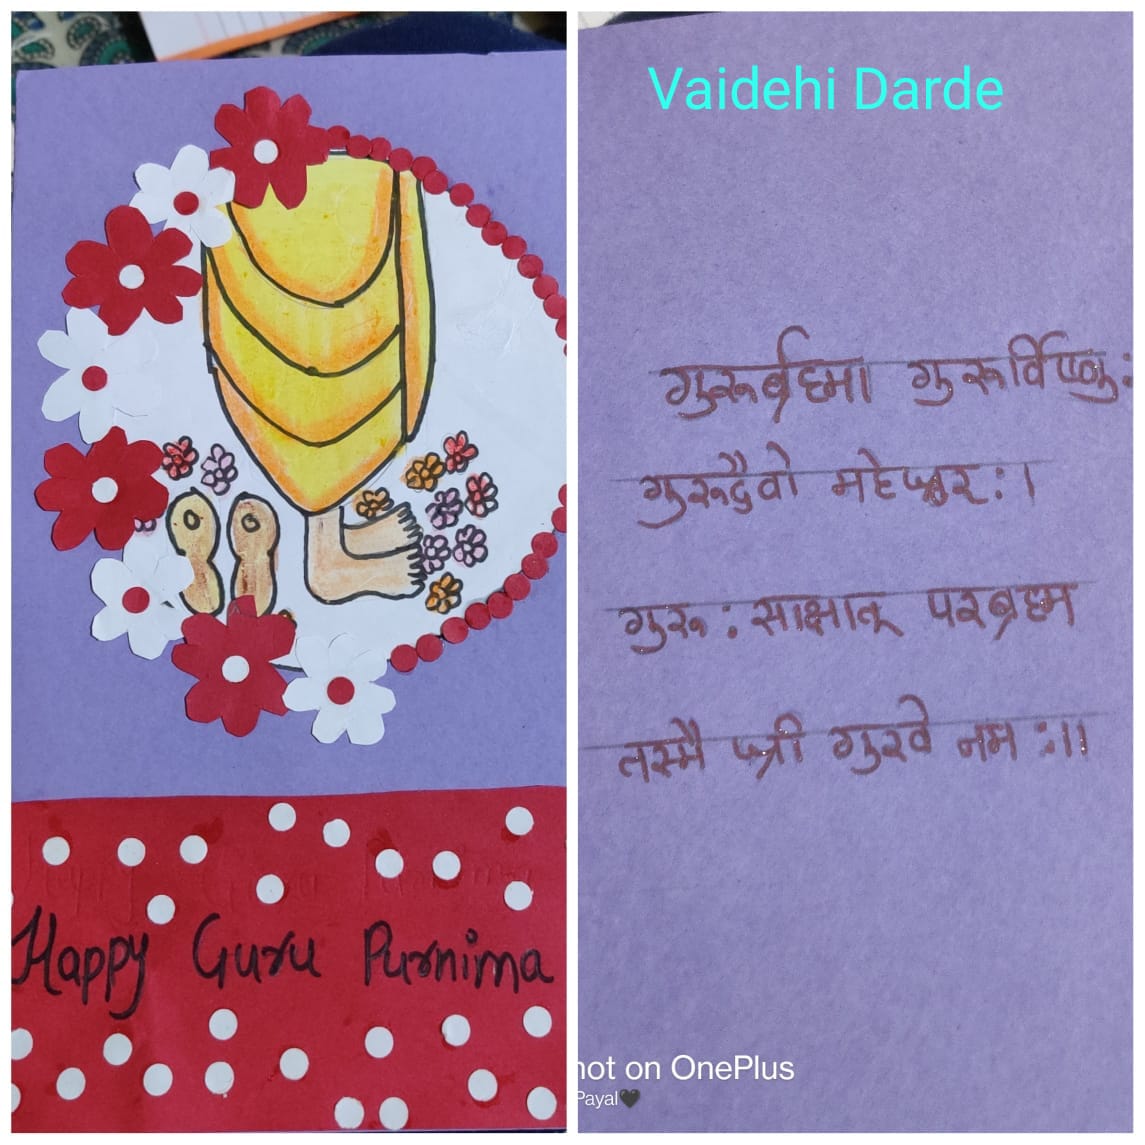 Happy Guru Purnima
Vaidehi Darde
गुरुर्ब्रह्मा गुरुर्विष्णु:
गुरुर्देवो महेश्वर:।
गुरु: साक्षात् परब्रह्म
तस्मै श्री गुरवे नम:।।
not on OnePlus
Payal🖤